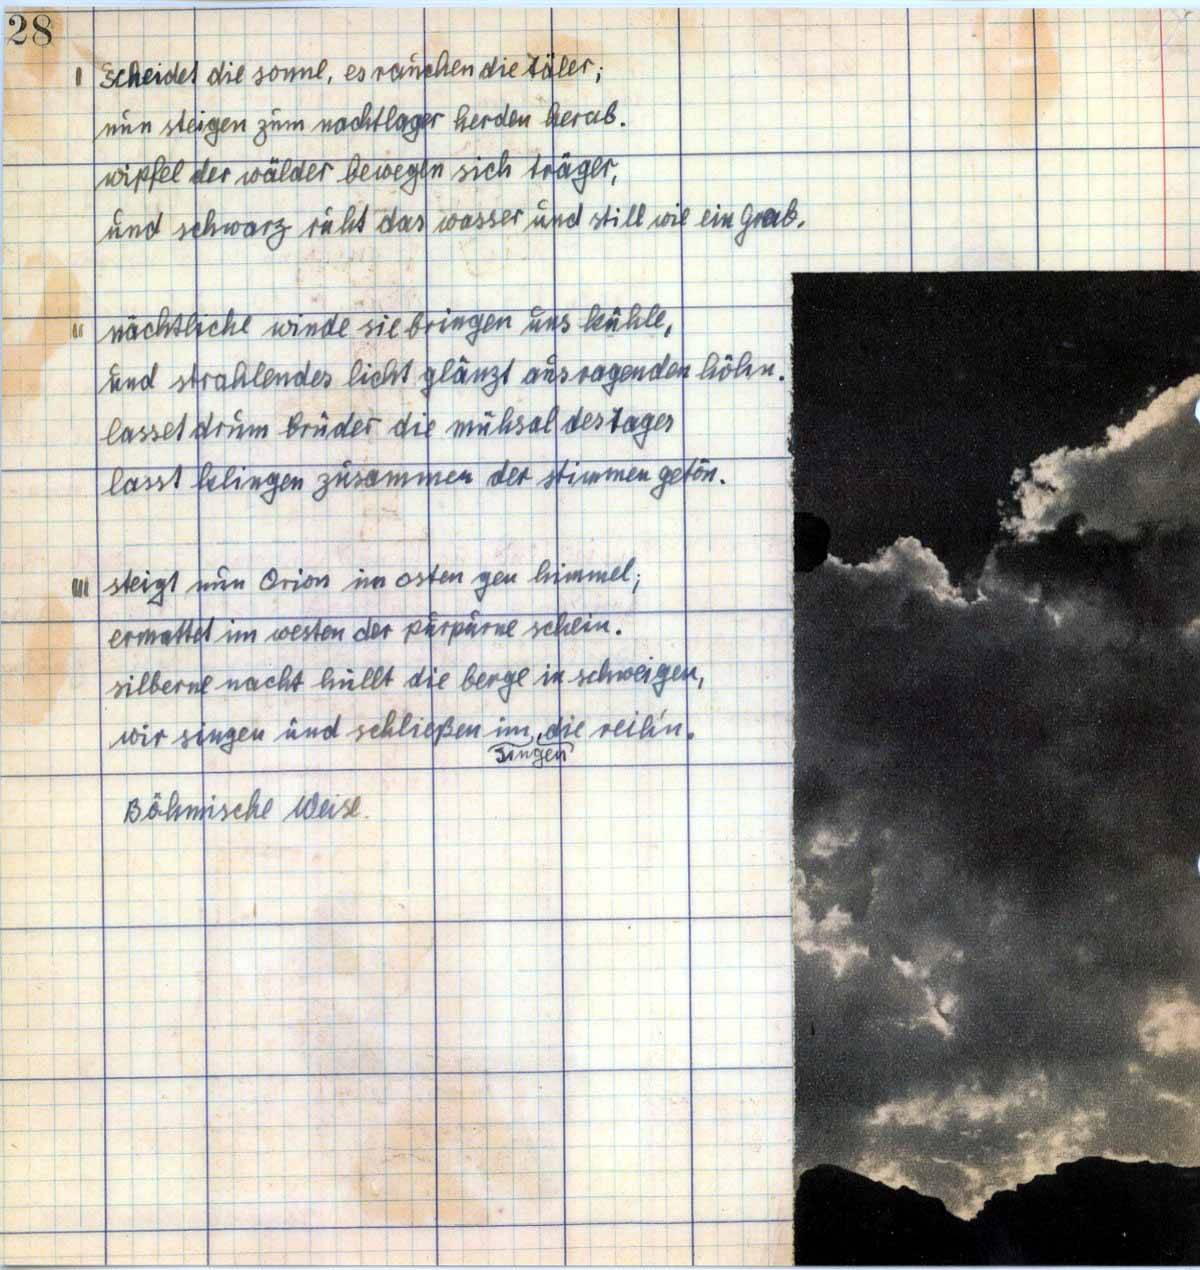 28
I scheidet die sonne, es rauchen die täler;
nun steigen zum nachtlager herden herab.
wipfel der wälder bewegen sich träger,
und schwarz ruht das wasser und still wie ein Grab.
II nächtliche winde sie bringen uns kühle,
und strahlendes licht glänzt aus ragenden höhn.
lasset drum brüder die mühsal des tages
lasst klingen zusammen der stimmen getön.
III steigt nun Orion im osten gen himmel;
ermattet im westen der purpurne schein.
silberne nacht hüllt die berge in schweigen,
wir singen und schließen im, die reih'n.
singen
Böhmische Weise.